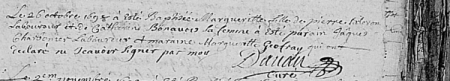 Le 26 octobre 1698 a esté Baptisée Marguerite fille de pierre
Laboureur et de Catherine Bonauois sa femme a esté parain Jaques
Charbonier Laboureur et maraine Marguerite Geofray qui ont
declaré ne scauoir signer par moy
Daudin
Curé